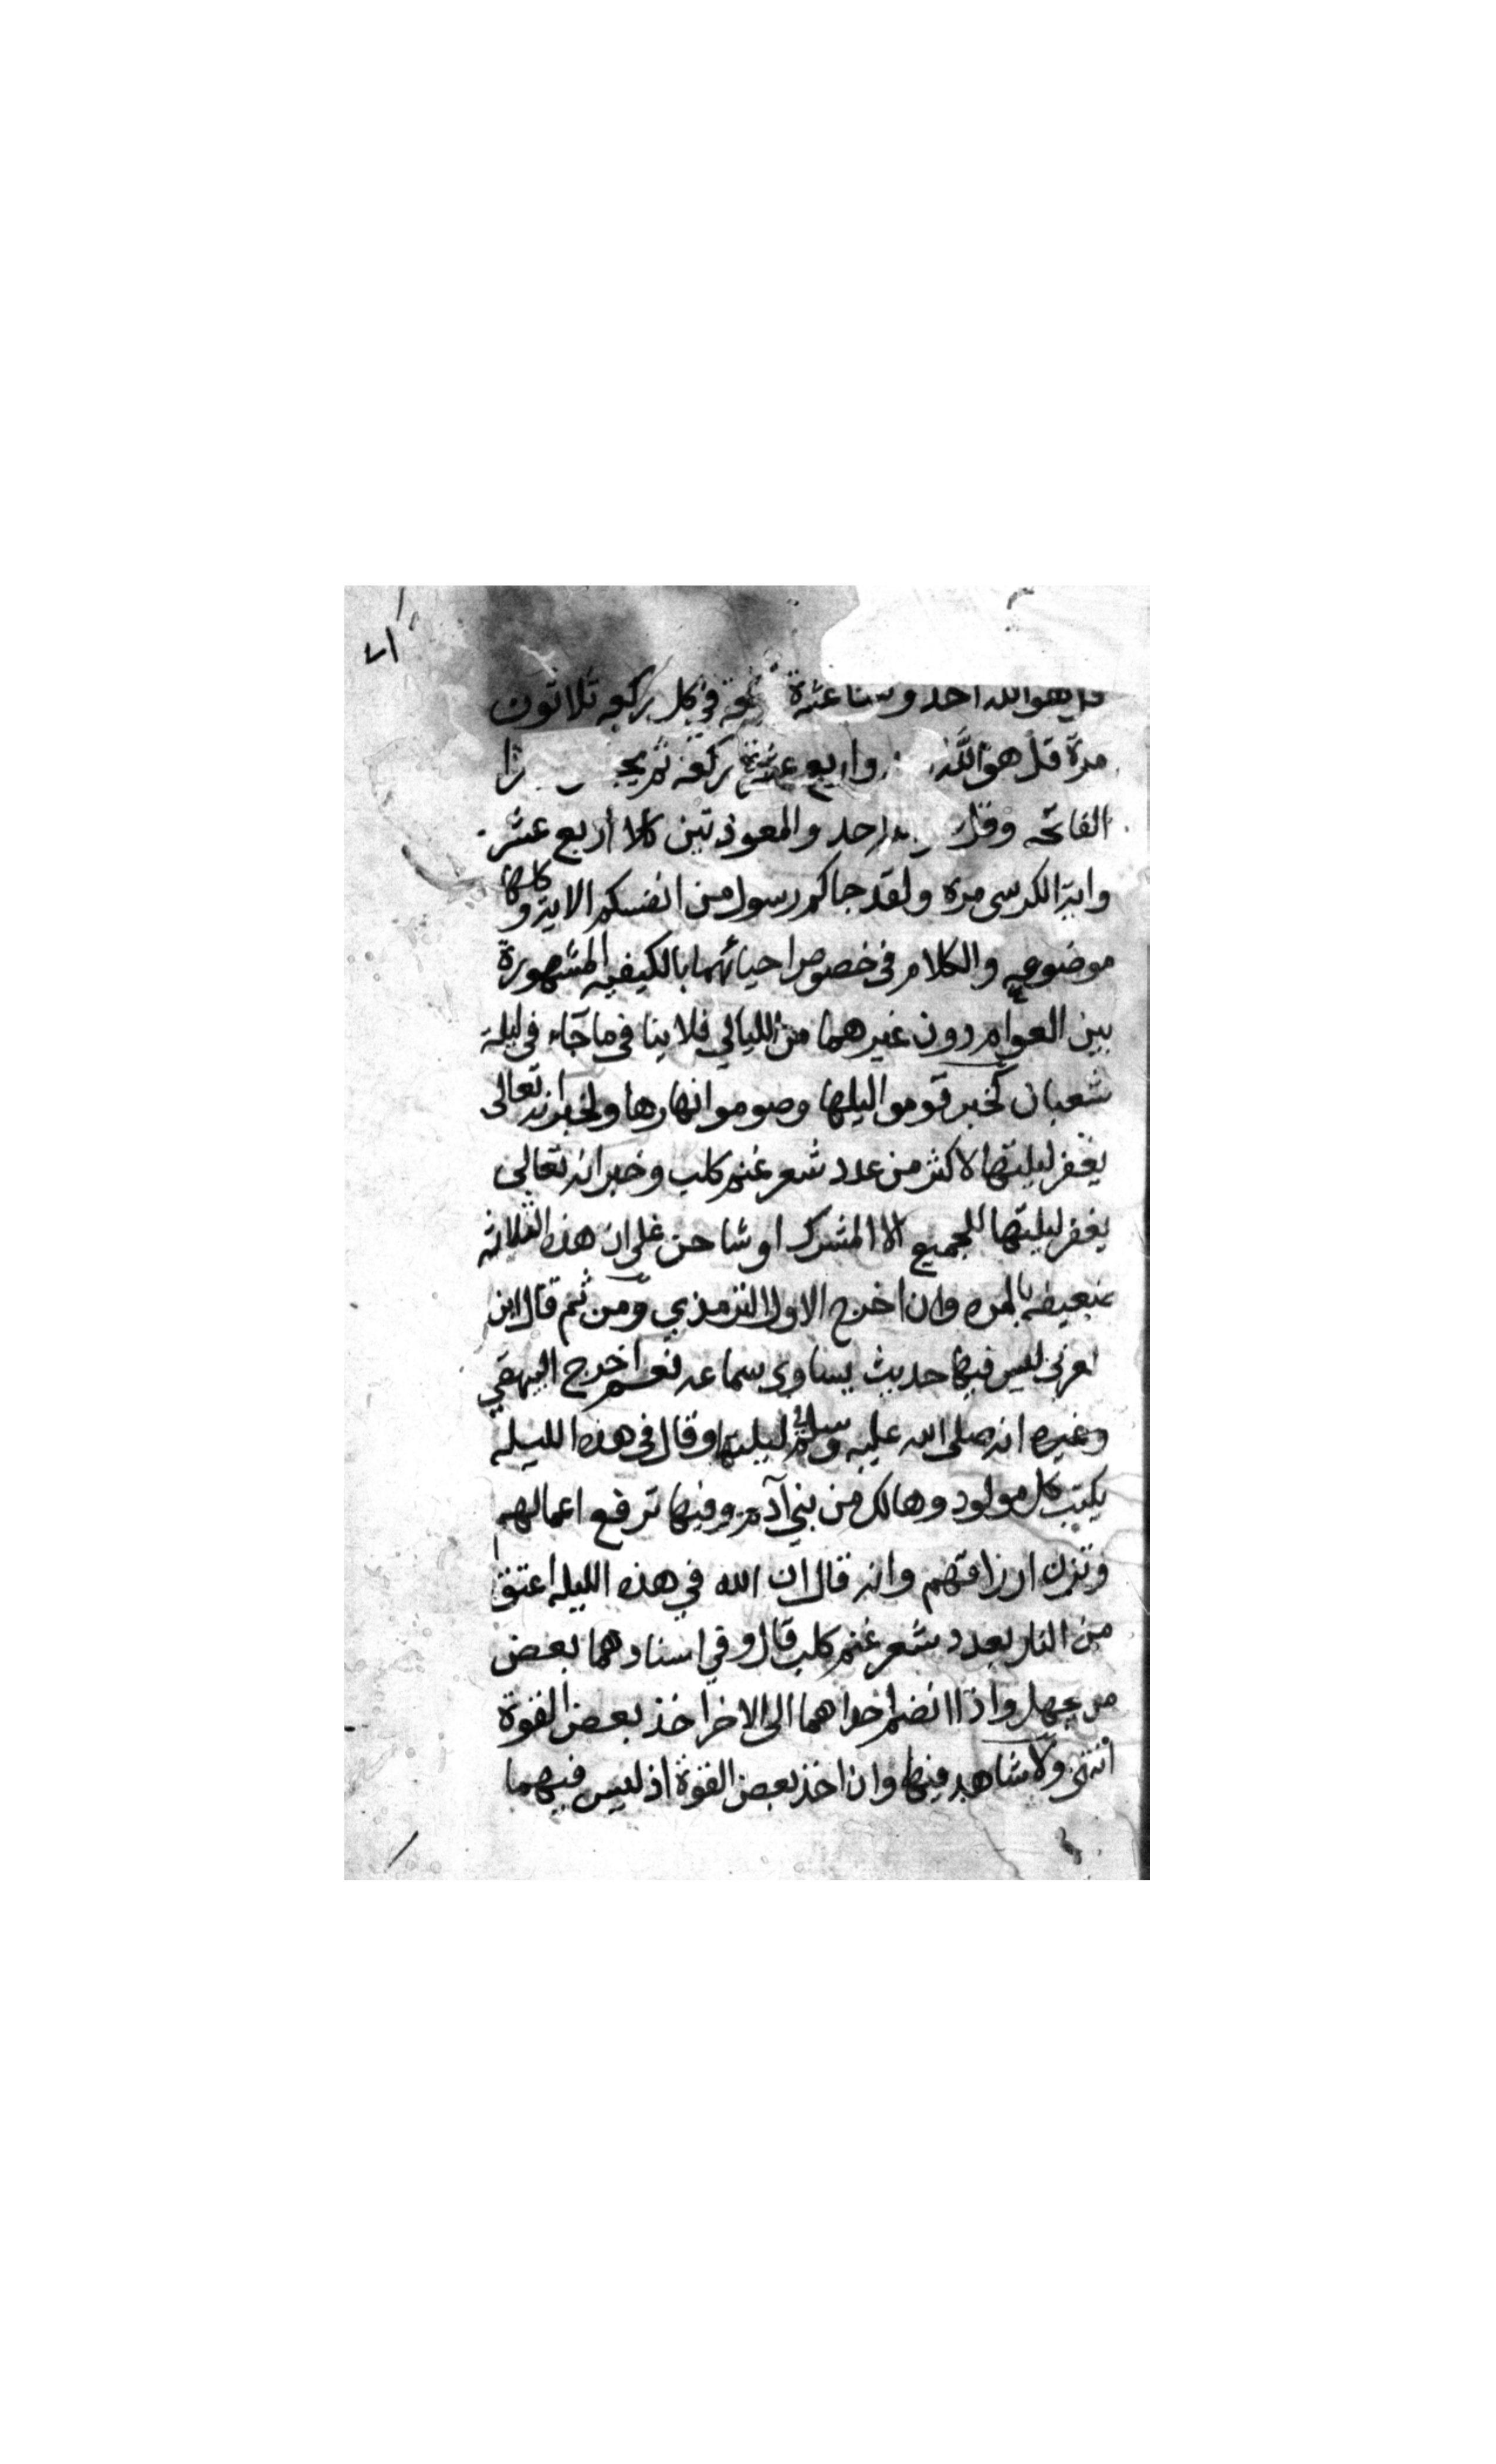 قل هو الله احد وثنتا عشرة ركعة في كل ركعه ثلاثون
مرة قل هو الله واربع عشرة ركعة ثم يجلس
الفاتحه وقل الله احد والمعوذتين كلا اربع عشر
واية الكرسي مرة ولقد جاكم رسول من انفسكم الاية وكلها
موضوعه والكلام في خصوص احيائهما بالكيفيه المشهورة
بين العوام دون غيرهما من الليالي فلا ينافي ما جآء في ليلة
شعبان كخبر قوموا ليلها وصوموا نهارها ولخبر انه تعالى
يغفر ليلتها لاكثر من عدد شعر غنم كلب وخبر انه تعالى
يغفر ليلتها للجميع الا المشرك او شاحن على ان هذه الثلاثة
ضعيفه بالمره وان اخرج الاول الترمذي ومن ثم قال ابن
العربي ليس فيها حديث يساوي سماعه نعم اخرج البيهقي
وغيره انه صلى الله عليه وسلم ليلتها وقال في هذه الليله
يكتب كل مولود وهالك من بني آدم وفيها ترفع اعمالهم
وتنزل ارزاقهم وانه قال ان الله في هذه الليله اعتق
من النار بعدد شعر غنم كلب قال وفي اسنادهما بعض
من يجهل واذا انضم احداهما الى الاخر اخذ بعض القوة
انتهى ولا شاهد فيها وان اخذ بعض القوة اذ ليس فيهما